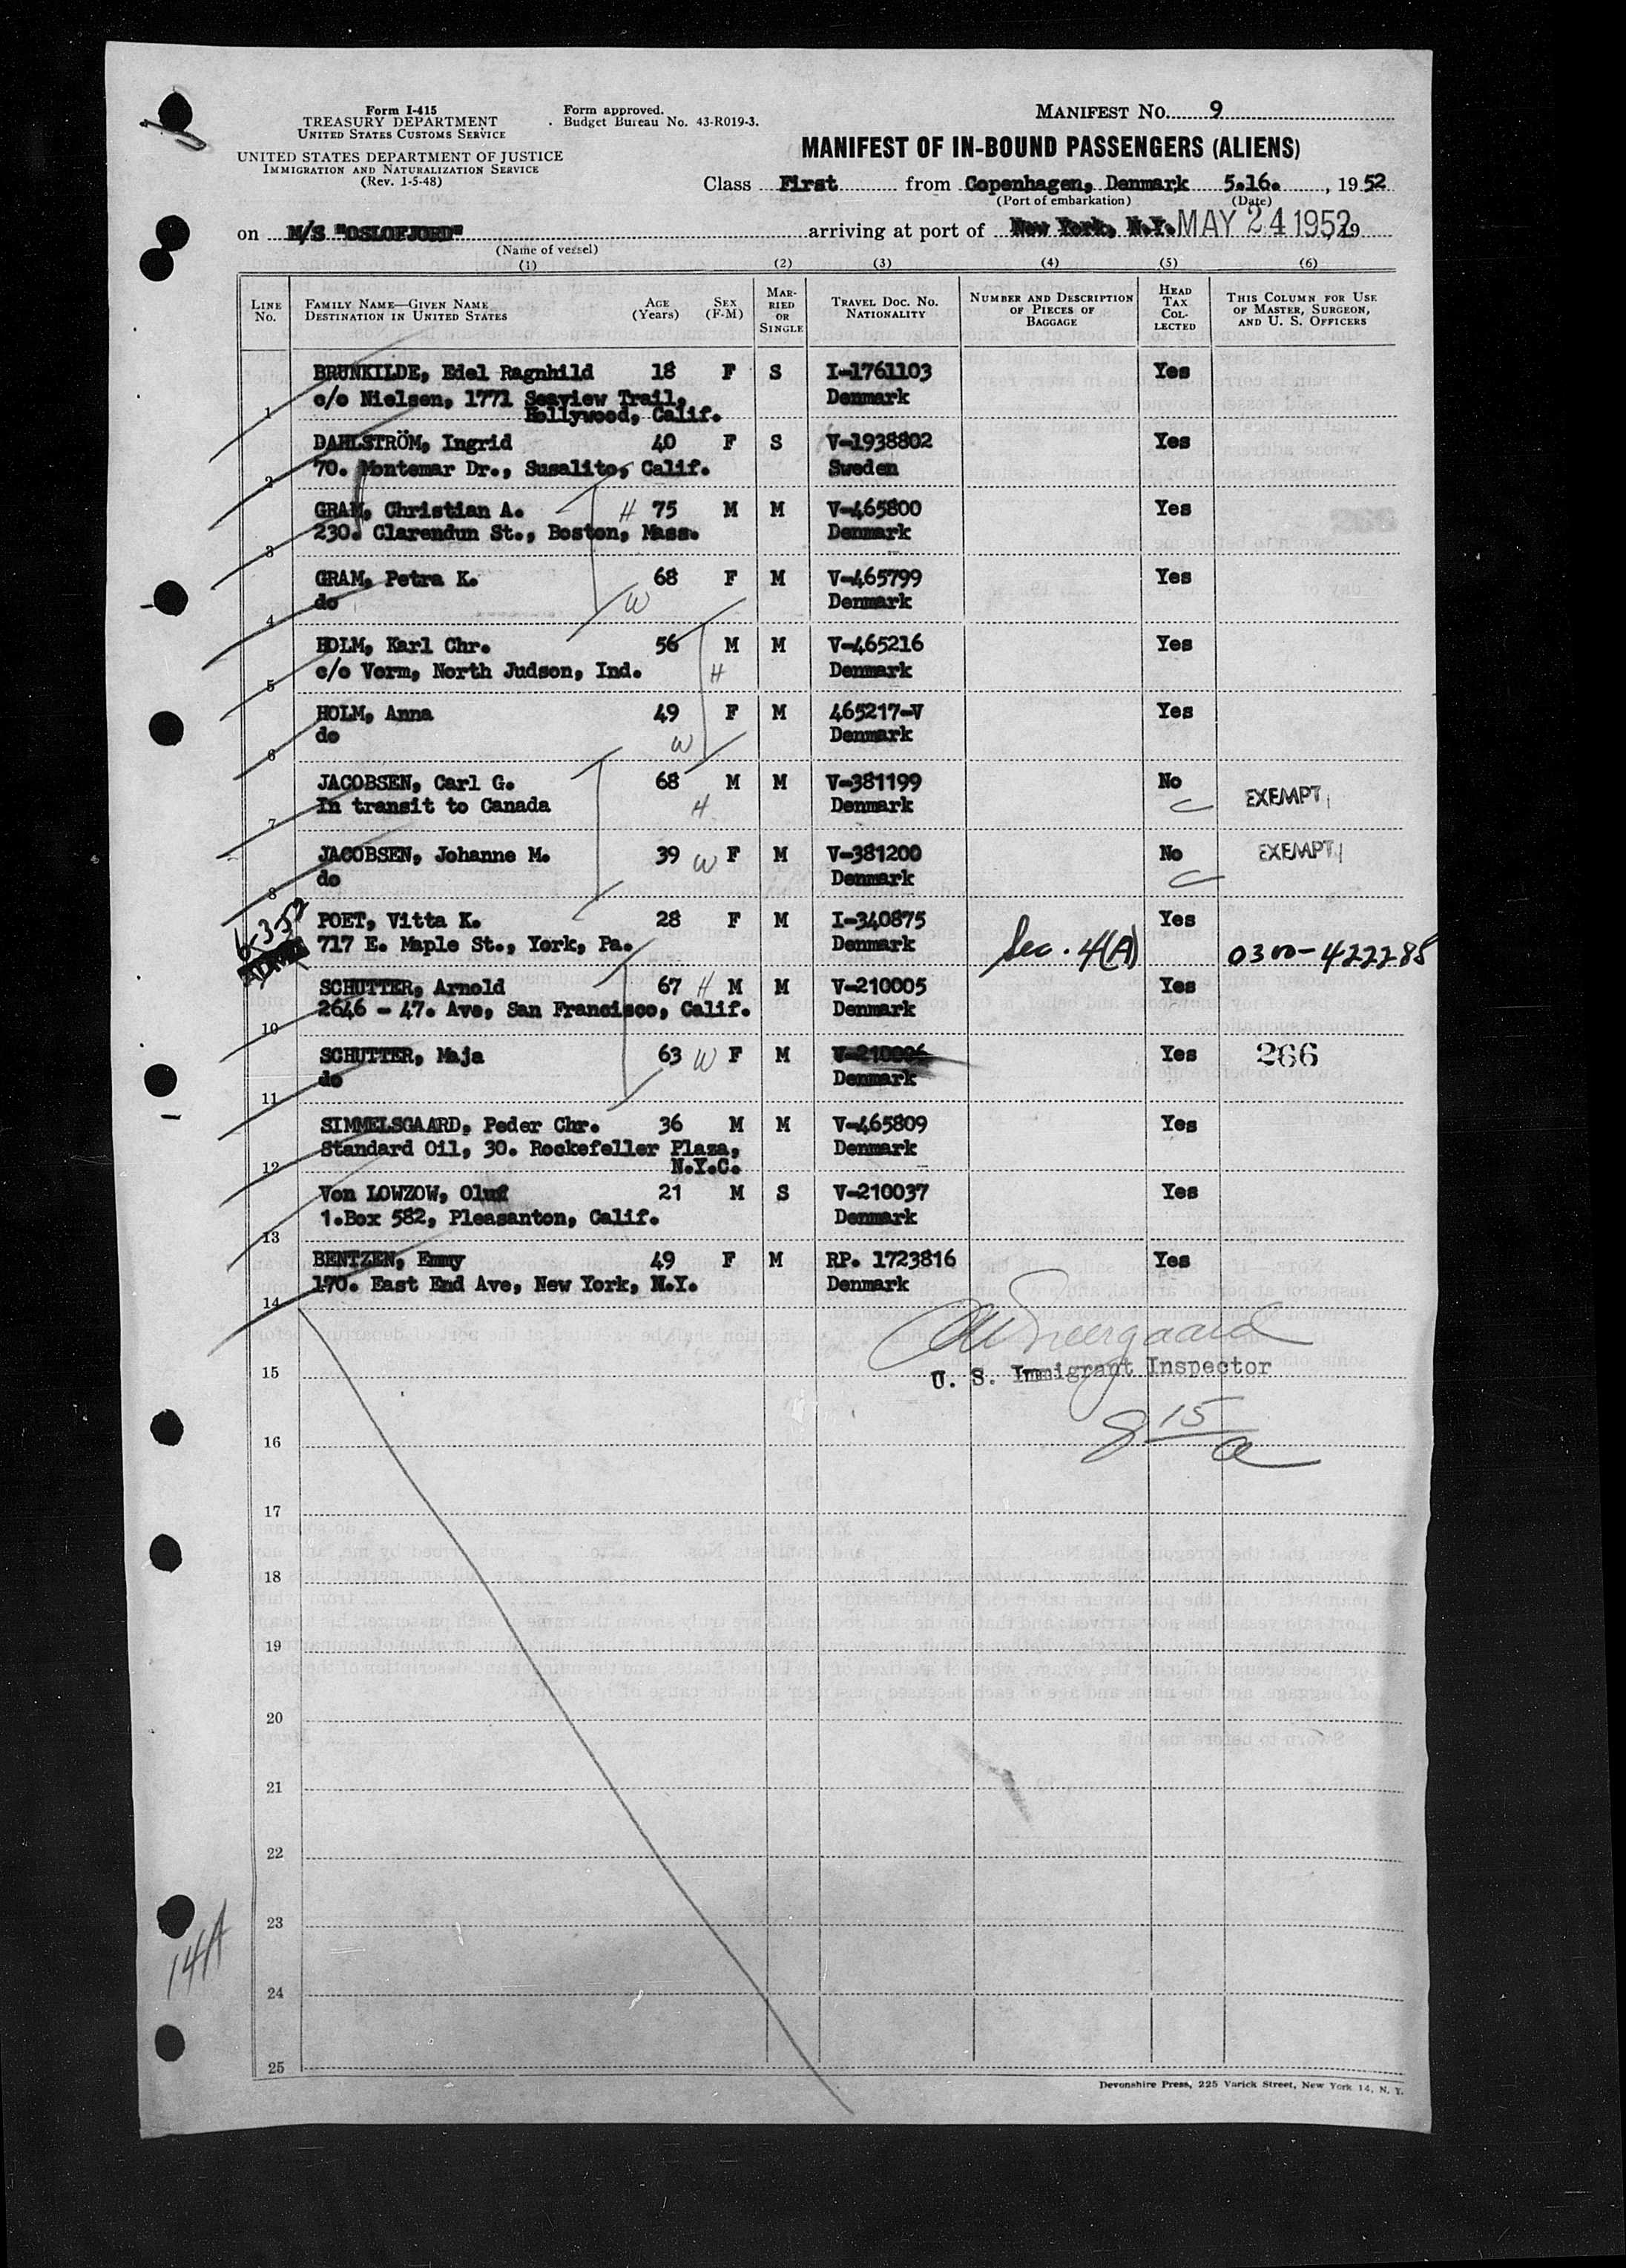 Form I-415
TREASURY DEPARTMENT
UNITED STATES CUSTOMS SERVICE
Form approved.
Budget Bureau No. 43-R019-3.
MANIFEST NO. 9
UNITED STATES DEPARTMENT OF JUSTICE
IMMIGRATION AND NATURALIZATION SERVICE
(Rev. 1-5-48)
MANIFEST OF IN-BOUND PASSENGERS (ALIENS)
Class First from Copenhagen, Denmark 5.16. , 1952
(Port of embarkation) (Date)
on M/S "OSLOFJORD" arriving at port of New York, N.Y. MAY 24 1952, 19
(Name of vessel)
(1) (2) (3) (4) (5) (6)
LINE NO. FAMILY NAME—GIVEN NAME DESTINATION IN UNITED STATES AGE (Years) SEX (F-M) MARRIED OR SINGLE TRAVEL DOC. NO. NATIONALITY NUMBER AND DESCRIPTION OF PIECES OF BAGGAGE HEAD TAX COLLECTED THIS COLUMN FOR USE OF MASTER, SURGEON, AND U. S. OFFICERS
BRUNKILDE, Edel Ragnhild 18 F S I-1761103 Yes
c/o Nielsen, 1771 Seaview Trail, Denmark
1 Hollywood, Calif.
DAHLSTRÖM, Ingrid 40 F S V-1938802 Yes
2 70. Montemar Dr., Susalito, Calif. Sweden
GRAM, Christian A. H 75 M M V-465800 Yes
3 230. Clarendun St., Boston, Mass. Denmark
GRAM, Petra K. 68 F M V-465799 Yes
4 do W Denmark
HOLM, Karl Chr. 56 M M V-465216 Yes
5 c/o Vorm, North Judson, Ind. H Denmark
HOLM, Anna 49 F M 465217-V Yes
6 do W Denmark
JACOBSEN, Carl G. 68 M M V-381199 No EXEMPT
7 In transit to Canada H Denmark C
JACOBSEN, Johanne M. 39 W F M V-381200 No EXEMPT
8 do Denmark C
6-3-52 POET, Vitta K. 28 F M I-340875 Yes
717 E. Maple St., York, Pa. Denmark Sec. 4(A) 0300-422285
SCHUTTER, Arnold 67 H M M V-210005 Yes
10 2646 - 47. Ave, San Francisco, Calif. Denmark
SCHUTTER, Maja 63 W F M V-210006 Yes 266
11 do Denmark
SIMMELSGAARD, Peder Chr. 36 M M V-465809 Yes
Standard Oil, 30. Rockefeller Plaza, Denmark
12 N.Y.C.
Von LOWZOW, Oluf 21 M S V-210037 Yes
13 1.Box 582, Pleasanton, Calif. Denmark
BENTZEN, Emmy 49 F M RP. 1723816 Yes
14 170. East End Ave, New York, N.Y. Denmark
15 U. S. Immigrant Inspector
8 15/a
16
17
18
19
20
21
22
23
14A
24
25
Devonshire Press, 225 Varick Street, New York 14, N. Y.